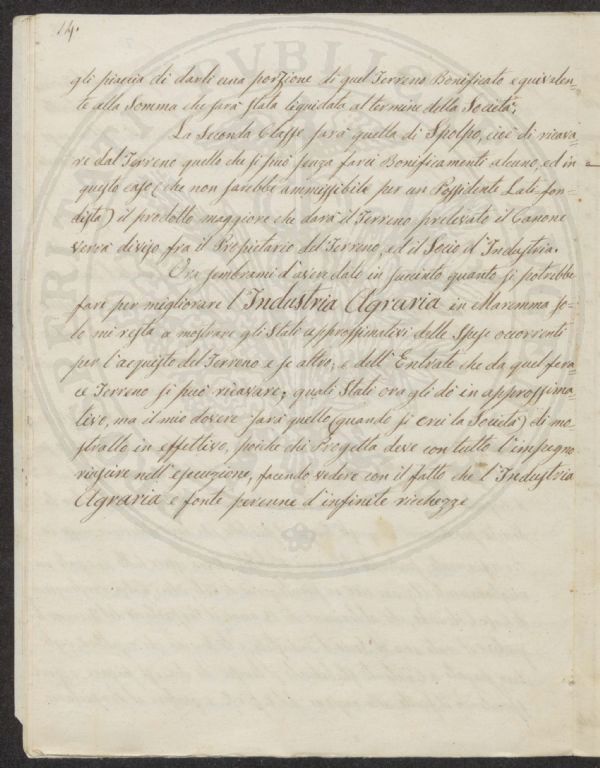 14.
gli piaccia di darli una porzione di quel Terreno Bonificato equivalen=
te alla Somma che sarà stata liquidata al termine della Società;
La Seconda Classe sarà quella di Spolpo, cioè di ricava=
re dal Terreno quello che si può senza farci Bonificamenti alcuno, ed in
questo caso (che non sarebbe ammissibile per un Possidente Lati-fon=
dista) il prodotto maggiore che darà il Terreno prelevato il Canone
verrà diviso fra il Propietario del Terreno, ed il Socio d'Industria.
Ora sembrami d'aver dato in succinto quanto si potrebbe
fare per migliorare l'Industria Agraria in Maremma so=
lo mi resta a mostrare gli Stati approssimativi delle Spese occorrenti
per l'acquisto del Terreno e se altro, e dell'Entrate che da quel fera=
ce Terreno si può ricavare; quali Stati ora gli dò in approssima=
tivo, ma il mio dovere sarà quello (quando si crei la Società) di mo=
strallo in effettivo, poiche chi Progetta deve con tutto l'impegno
riuscire nell'esecuzione, facendo vedere con il fatto che l'Industria
Agraria e fonte perenne d'infinite ricchezze
PVBLIC